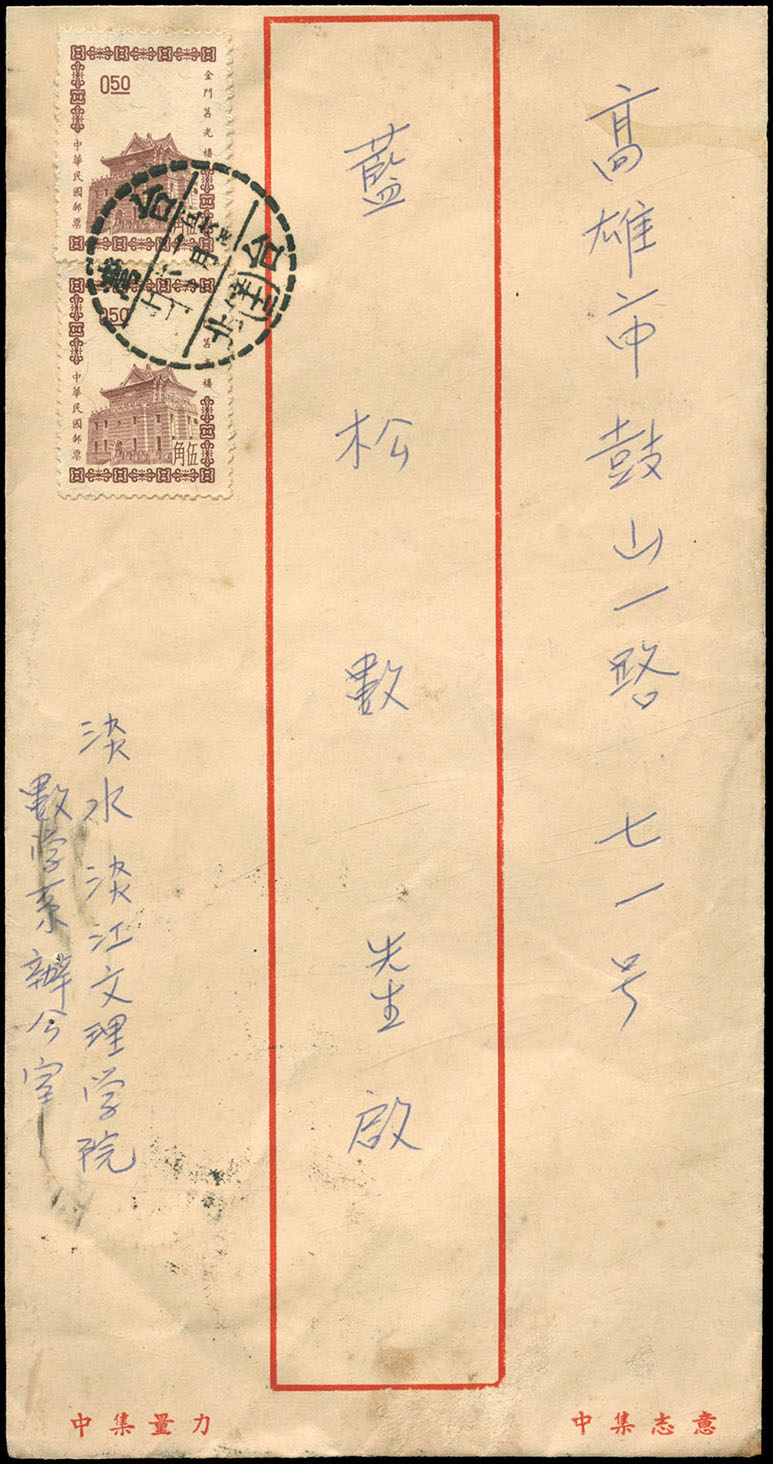 高雄市鼓山一路 七一号
藍松數先生啟
淡水 淡江文理学院
數学系辦公室
0.50
金門莒光樓
中華民國郵票
伍角
0.50
莒光樓
中華民國郵票
伍角
台灣
台北
意志集中
力量集中